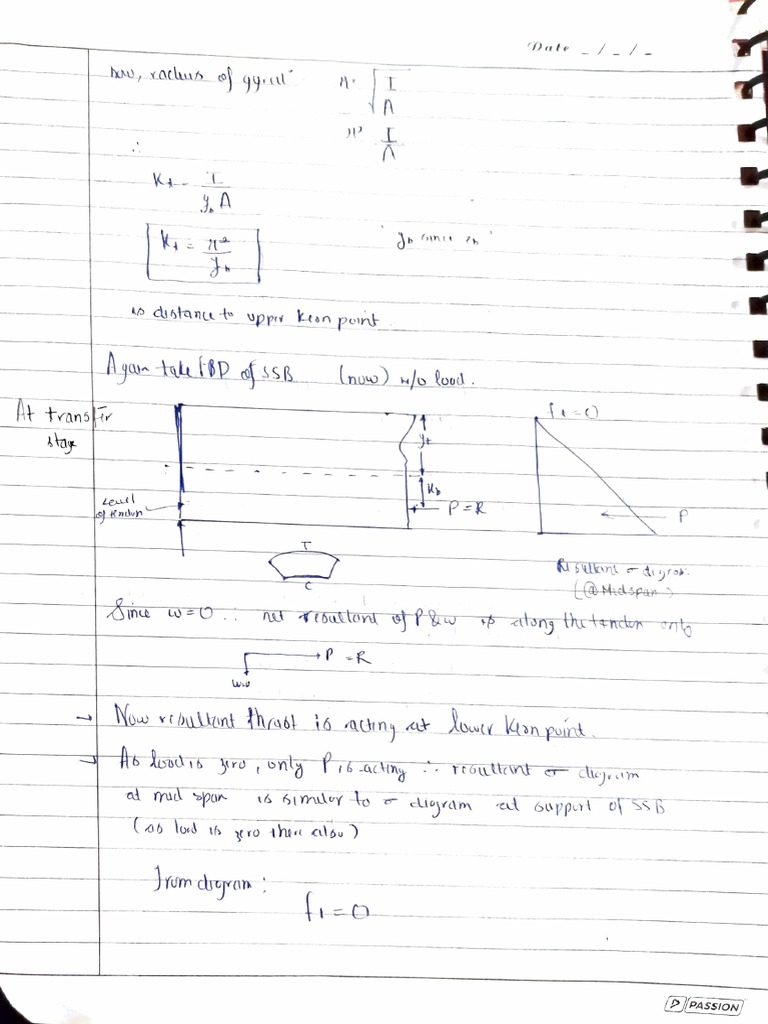 Date _ / _ / _
now, radius of gyratⁿ r = √(I/A)
r² = I/A
∴
Kt = I/(yb A)
Kt = r²/yb
is distance to upper Kern point.
Again take FBD of SSB (now) w/o load.
At transfer
stage
f1 = 0
yt
Kb
P = R
Level
of tendon
P
T
C
Resultant σ diagram
(@Midspan)
Since w = 0 ∴ net resultant of P & w is along the tendon only
P = R
w=0
→ Now resultant thrust is acting at lower Kern point.
→ As load is zero, only P is acting ∴ resultant σ diagram
at mid span is similar to σ diagram at support of SSB
(as load is zero there also)
From diagram:
f1 = 0
P PASSION